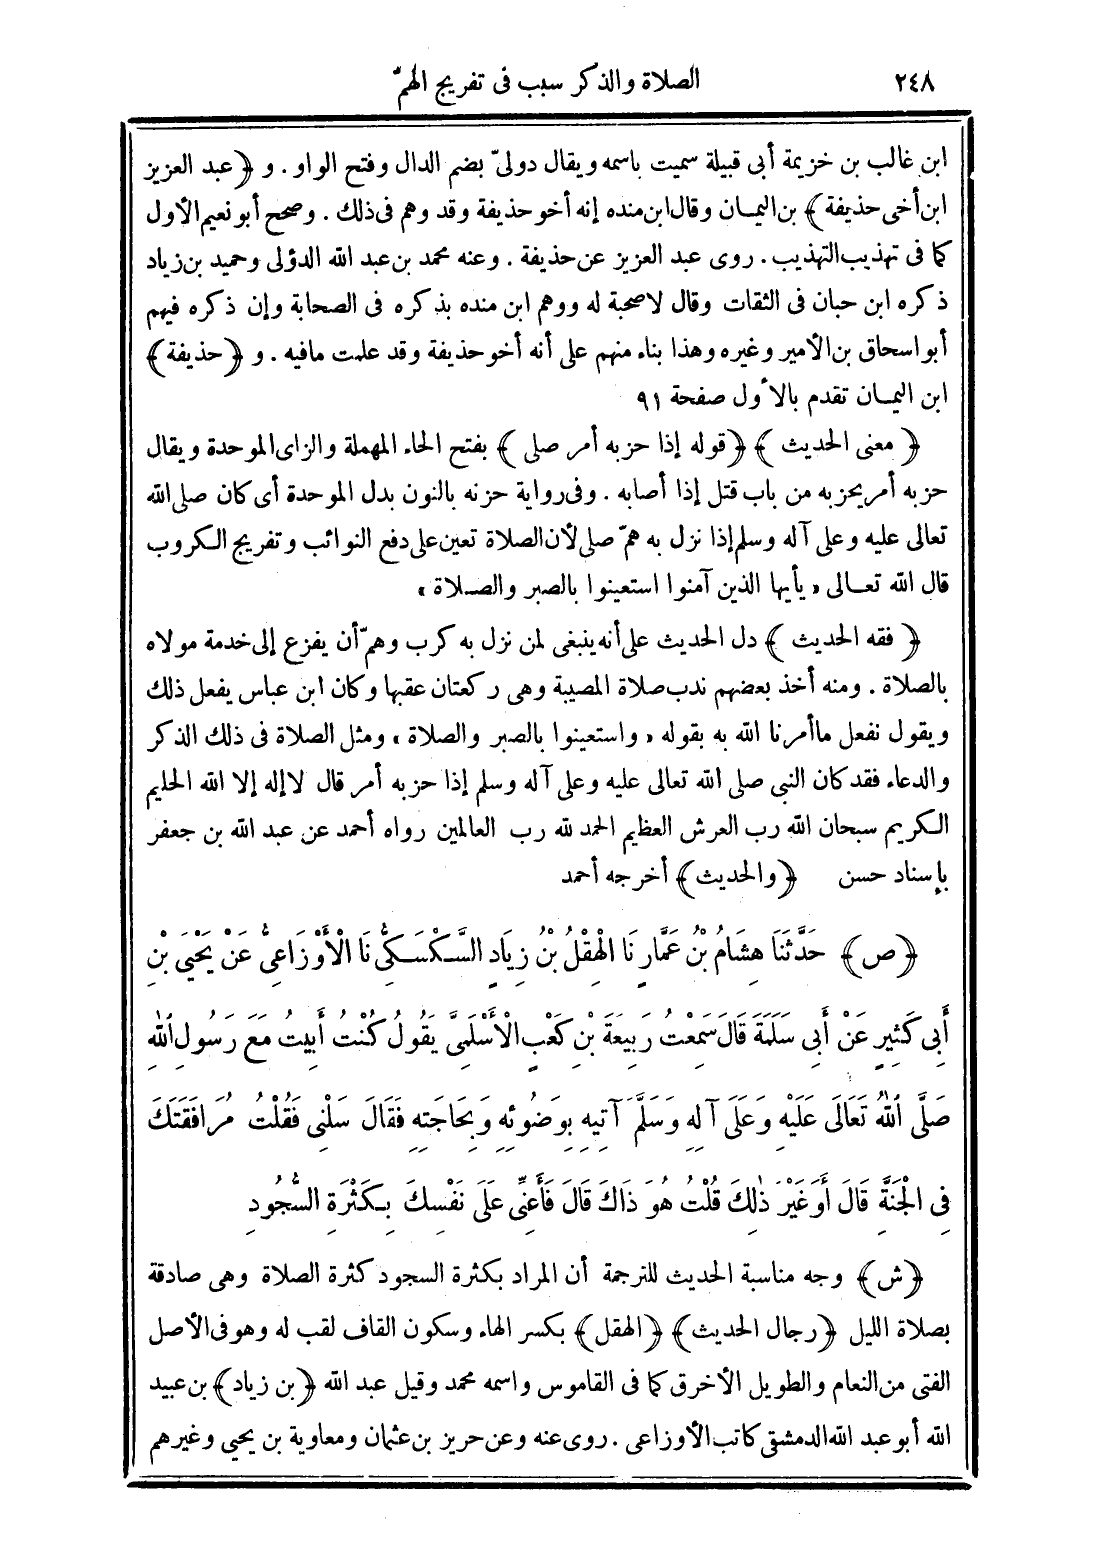 ٢٤٨ الصلاة والذكر سبب فى تفريج الهمّ
ابن غالب بن خزيمة أبى قبيلة سميت باسمه ويقال دولىّ بضم الدال وفتح الواو. و ﴿عبد العزيز
ابن أخى حذيفة﴾ بن اليمان وقال ابن منده إنه أخو حذيفة وقد وهم فى ذلك. وصحح أبو نعيم الأول
كما فى تهذيب التهذيب. روى عبد العزيز عن حذيفة. وعنه محمد بن عبد الله الدؤلى وحميد بن زياد
ذكره ابن حبان فى الثقات وقال لاصحبة له ووهم ابن منده بذكره فى الصحابة وإن ذكره فيهم
أبو اسحاق بن الأمير وغيره وهذا بناء منهم على أنه أخو حذيفة وقد علمت مافيه. و ﴿حذيفة﴾
ابن اليمان تقدم بالأول صفحة ٩١
﴿معنى الحديث﴾ ﴿قوله إذا حزبه أمر صلى﴾ بفتح الحاء المهملة والزاى الموحدة ويقال
حزبه أمر يحزبه من باب قتل إذا أصابه. وفى رواية حزنه بالنون بدل الموحدة أى كان صلى الله
تعالى عليه وعلى آله وسلم إذا نزل به همّ صلى لأن الصلاة تعين على دفع النوائب وتفريج الكروب
قال الله تعالى «يأيها الذين آمنوا استعينوا بالصبر والصلاة»
﴿فقه الحديث﴾ دل الحديث على أنه ينبغى لمن نزل به كرب وهمّ أن يفزع إلى خدمة مولاه
بالصلاة. ومنه أخذ بعضهم ندب صلاة المصيبة وهى ركعتان عقبها وكان ابن عباس يفعل ذلك
ويقول نفعل ماأمرنا الله به بقوله «واستعينوا بالصبر والصلاة» ومثل الصلاة فى ذلك الذكر
والدعاء فقد كان النبى صلى الله تعالى عليه وعلى آله وسلم إذا حزبه أمر قال لاإله إلا الله الحليم
الكريم سبحان الله رب العرش العظيم الحمد لله رب العالمين رواه أحمد عن عبد الله بن جعفر
بإسناد حسن ﴿والحديث﴾ أخرجه أحمد
﴿ص﴾ حَدَّثَنَا هِشَامُ بْنُ عَمَّارٍ نَا الْهِقْلُ بْنُ زِيَادٍ السَّكْسَكِىُّ نَا الْأَوْزَاعِىُّ عَنْ يَحْيَى بْنِ
أَبِى كَثِيرٍ عَنْ أَبِى سَلَمَةَ قَالَ سَمِعْتُ رَبِيعَةَ بْنَ كَعْبٍ الْأَسْلَمِىَّ يَقُولُ كُنْتُ أَبِيتُ مَعَ رَسُولِ اللهِ
صَلَّى اللهُ تَعَالَى عَلَيْهِ وَعَلَى آلِهِ وَسَلَّمَ آتِيهِ بِوَضُوئِهِ وَبِحَاجَتِهِ فَقَالَ سَلْنِى فَقُلْتُ مُرَافَقَتَكَ
فِى الْجَنَّةِ قَالَ أَوَغَيْرَ ذٰلِكَ قُلْتُ هُوَ ذَاكَ قَالَ فَأَعِنِّى عَلَى نَفْسِكَ بِكَثْرَةِ السُّجُودِ
﴿ش﴾ وجه مناسبة الحديث للترجمة أن المراد بكثرة السجود كثرة الصلاة وهى صادقة
بصلاة الليل ﴿رجال الحديث﴾ ﴿الهقل﴾ بكسر الهاء وسكون القاف لقب له وهو فى الأصل
الفتى من النعام والطويل الأخرق كما فى القاموس واسمه محمد وقيل عبد الله ﴿بن زياد﴾ بن عبيد
الله أبو عبد الله الدمشقى كاتب الأوزاعى. روى عنه وعن حريز بن عثمان ومعاوية بن يحيى وغيرهم